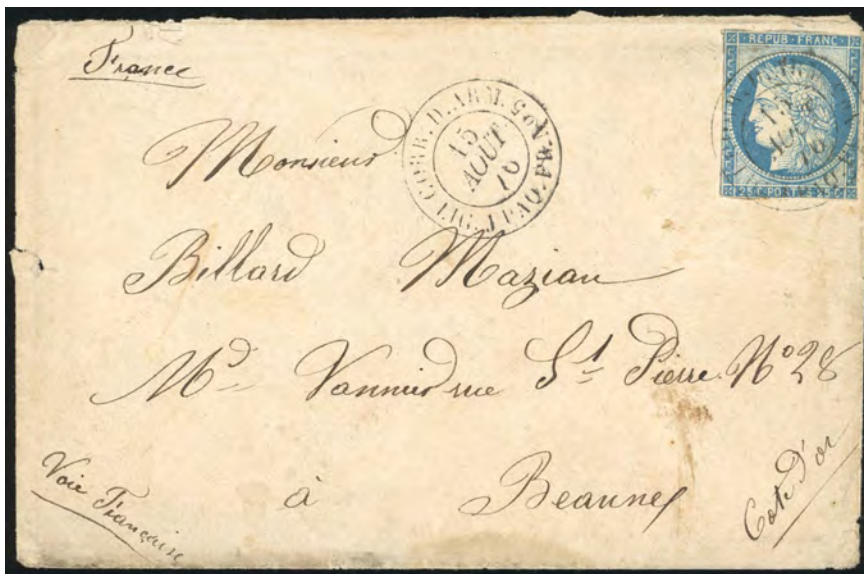 France
REPUB·FRANC·
25 C·POSTES·25 C
CORR. D. ARM. LIG. J PAQ. FR. No 5
15
AOUT
76
15
AOU
76
Monsieur
Billard Mazian
Md Vannier rue St Pierre No 28
à Beaune
Voie Française
Cote d'or